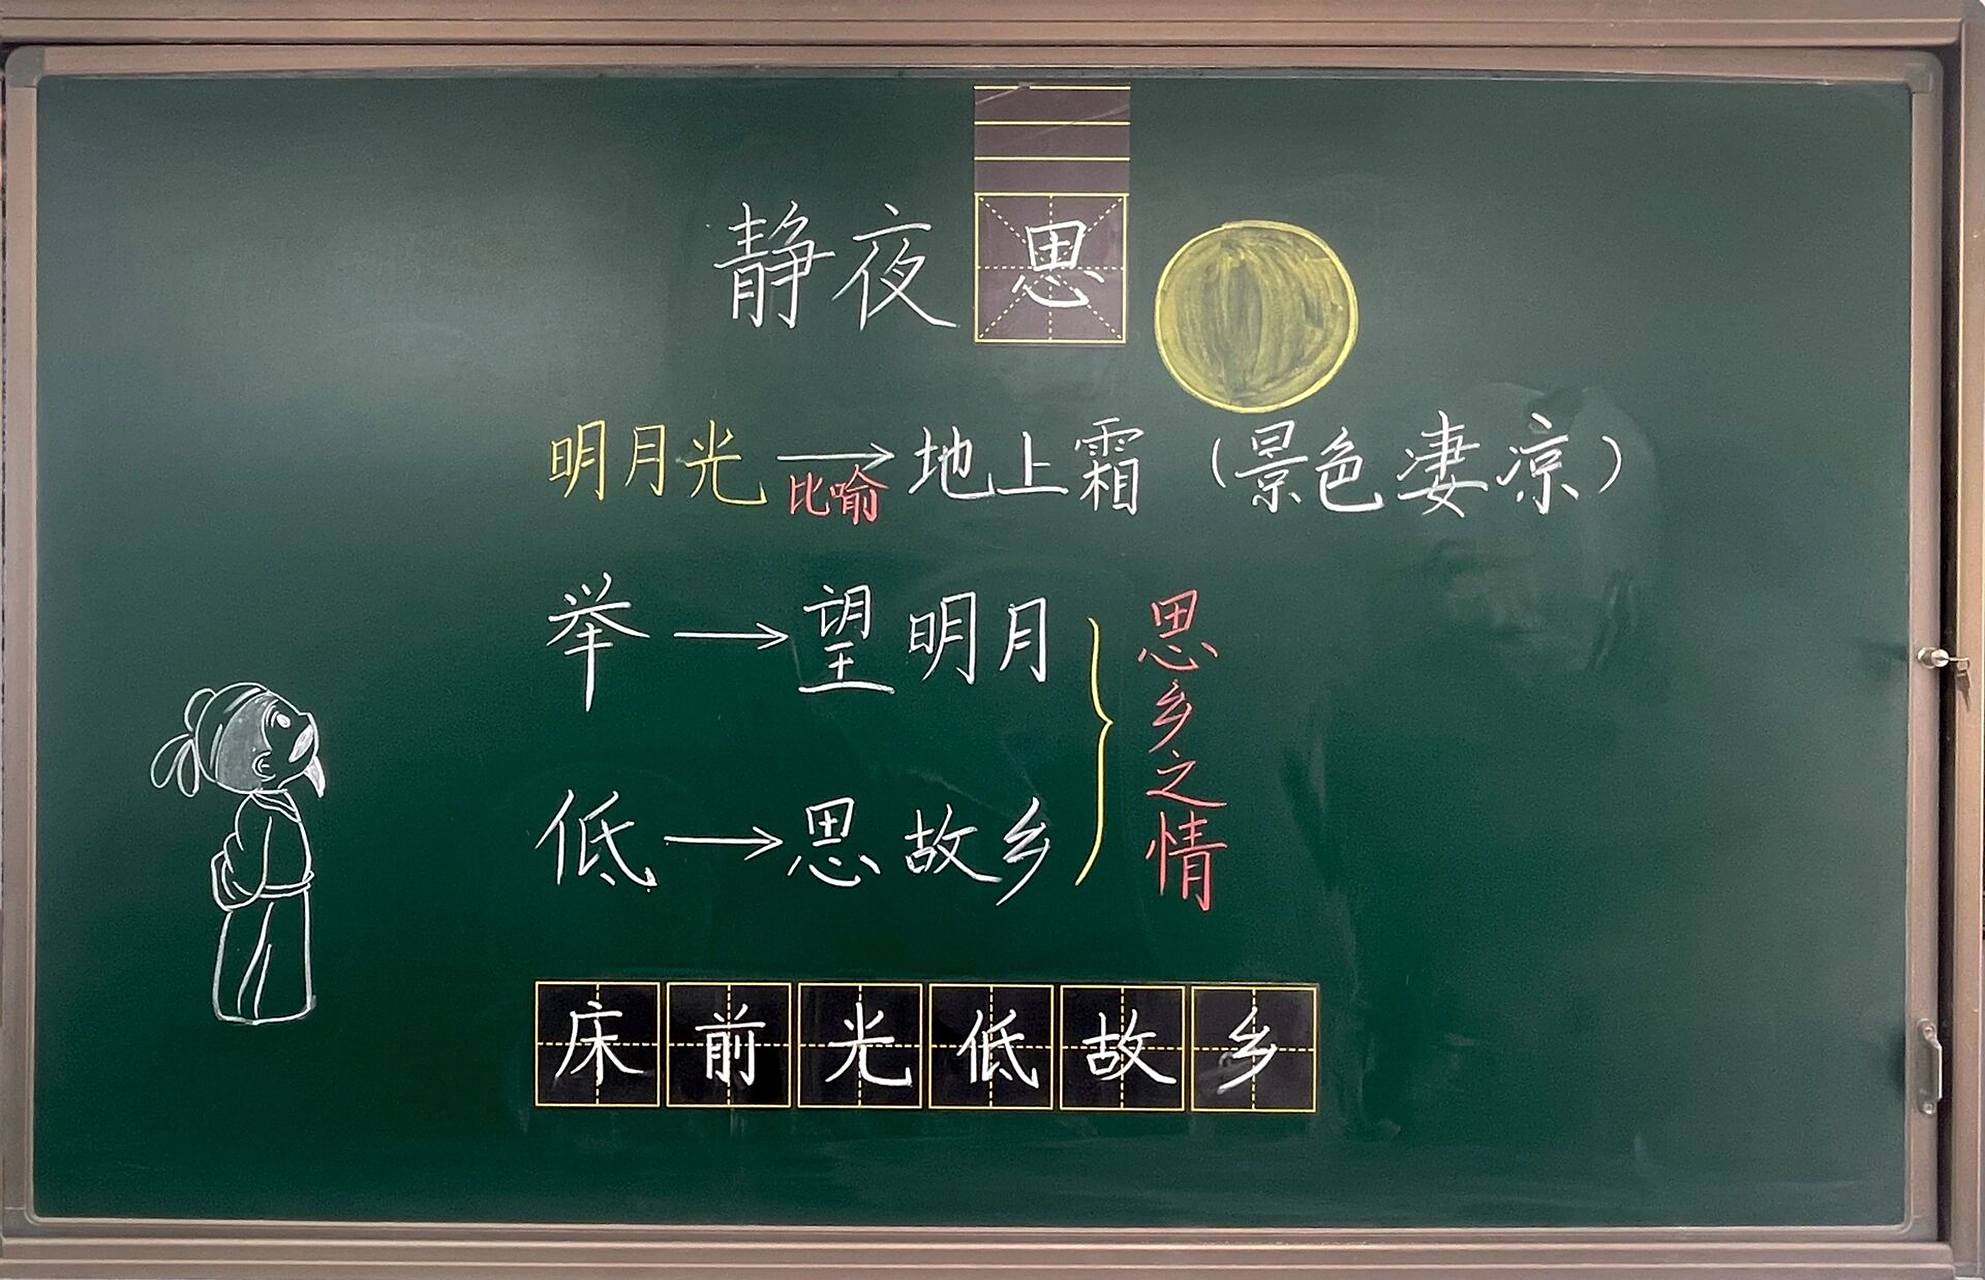 静夜思
明月光→地上霜（景色凄凉）
比喻
举→望明月
低→思故乡
思乡之情
床前光低故乡